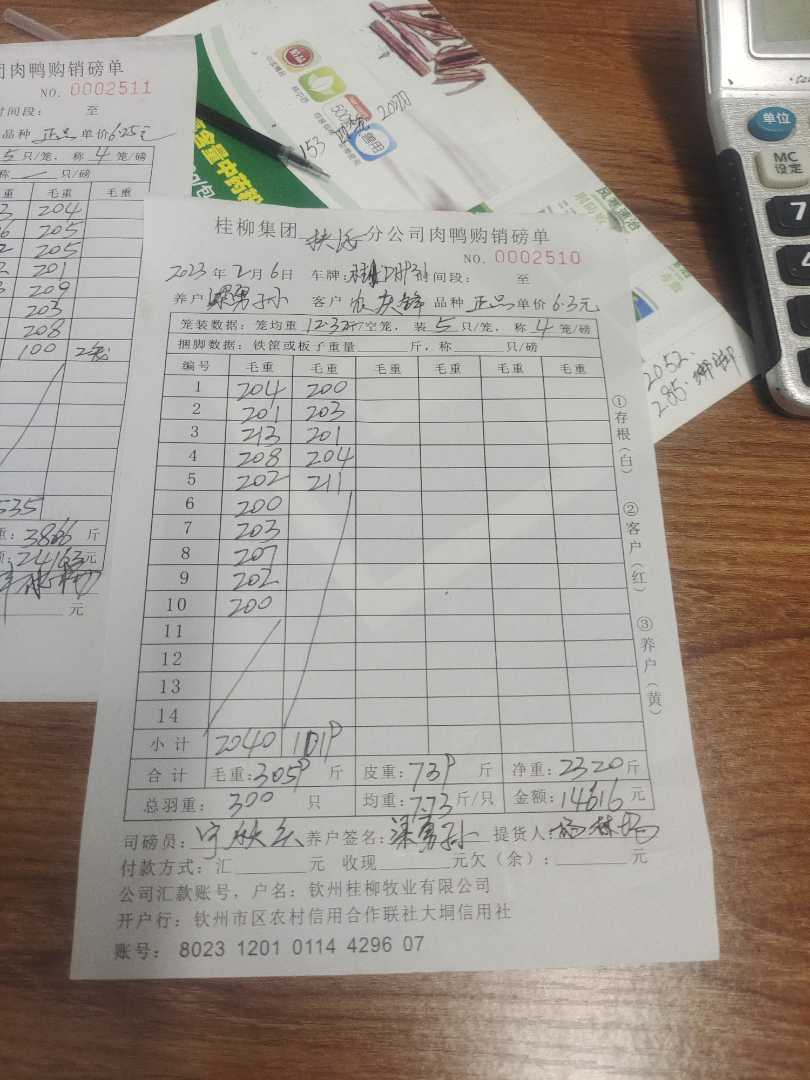 司肉鸭购销磅单
NO. 0002511
时间段: 至
品种 正品 单价 6.25元
5 只/笼, 称 4 笼/磅
称 — 只/磅
重 毛重 毛重
204
205
205
201
209
203
208
100
535
重: 3866 斤
24163 元
元
含量中药粉
g/包
兽用
153
2052.
285.
单位
MC
设定
7
桂柳集团 分公司肉鸭购销磅单
NO. 0002510
2023 年 2 月 6 日 车牌: 时间段: 至
养户 梁勇孙 客户 品种 正品 单价 6.3元
笼装数据: 笼均重 12.32斤/空笼, 装 5 只/笼, 称 4 笼/磅
捆脚数据: 铁筐或板子重量 斤, 称 只/磅
编号 毛重 毛重 毛重 毛重 毛重 毛重
1 204 200
2 201 203
3 213 201
4 208 204
5 202 211
6 200
7 203
8 207
9 202
10 200
11
12
13
14
小计 2040 1019
合计 毛重: 3059 斤 皮重: 739 斤 净重: 2320 斤
总羽重: 300 只 均重: 7.73 斤/只 金额: 14616 元
司磅员: 养户签名: 梁勇孙 提货人:
付款方式: 汇 元 收现 元 欠（余）: 元
公司汇款账号, 户名: 钦州桂柳牧业有限公司
开户行: 钦州市区农村信用合作联社大垌信用社
账号: 8023 1201 0114 4296 07
①存根（白）
②客户（红）
③养户（黄）